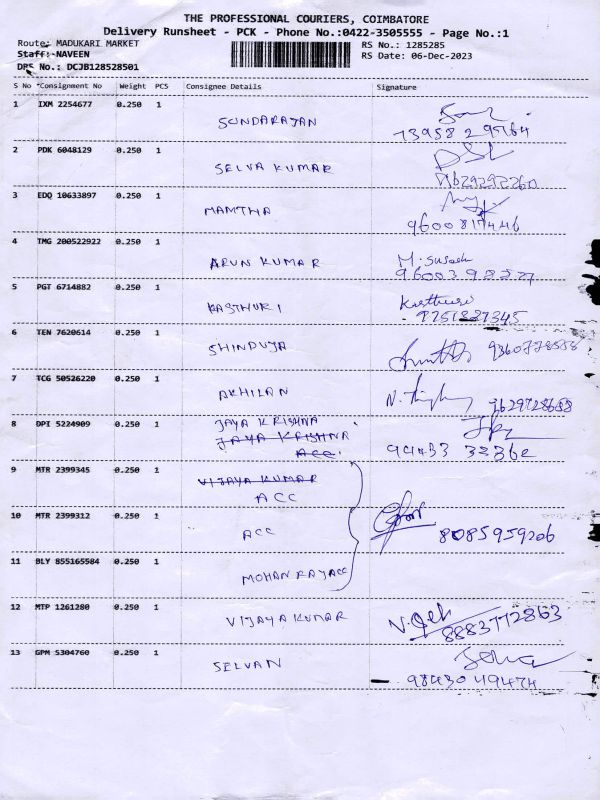 THE PROFESSIONAL COURIERS, COIMBATORE
Delivery Runsheet - PCK - Phone No.:0422-3505555 - Page No.:1
Route: MADUKARI MARKET
RS No.: 1285285
Staff: NAVEEN
RS Date: 06-Dec-2023
DRS No.: DCJB128528501
S No *Consignment No Weight PCS Consignee Details Signature
1 IXM 2254677 0.250 1
SUNDARAJAN
2 PDK 6048129 0.250 1
SELVA KUMAR
3 EDQ 10633897 0.250 1
MAMTHA
9600817446
4 TMG 200522922 0.250 1
ARUN KUMAR
5 PGT 6714882 0.250 1
KASTHURI
6 TEN 7620614 0.250 1
SHINDUJA
7 TCG 50526220 0.250 1
AKHILAN
8 DPI 5224909 0.250 1
JAYA KRISHNA
JAYA KRISHNA
ACC
9 MTR 2399345 0.250 1
VIJAYA KUMAR
ACC
10 MTR 2399312 0.250 1
ACC
8085959206
11 BLY 855165584 0.250 1
MOHAN RAJ ACC
12 MTP 1261280 0.250 1
VIJAYA KUMAR
8883772863
13 GPM 5304760 0.250 1
SELVAN
9843049474